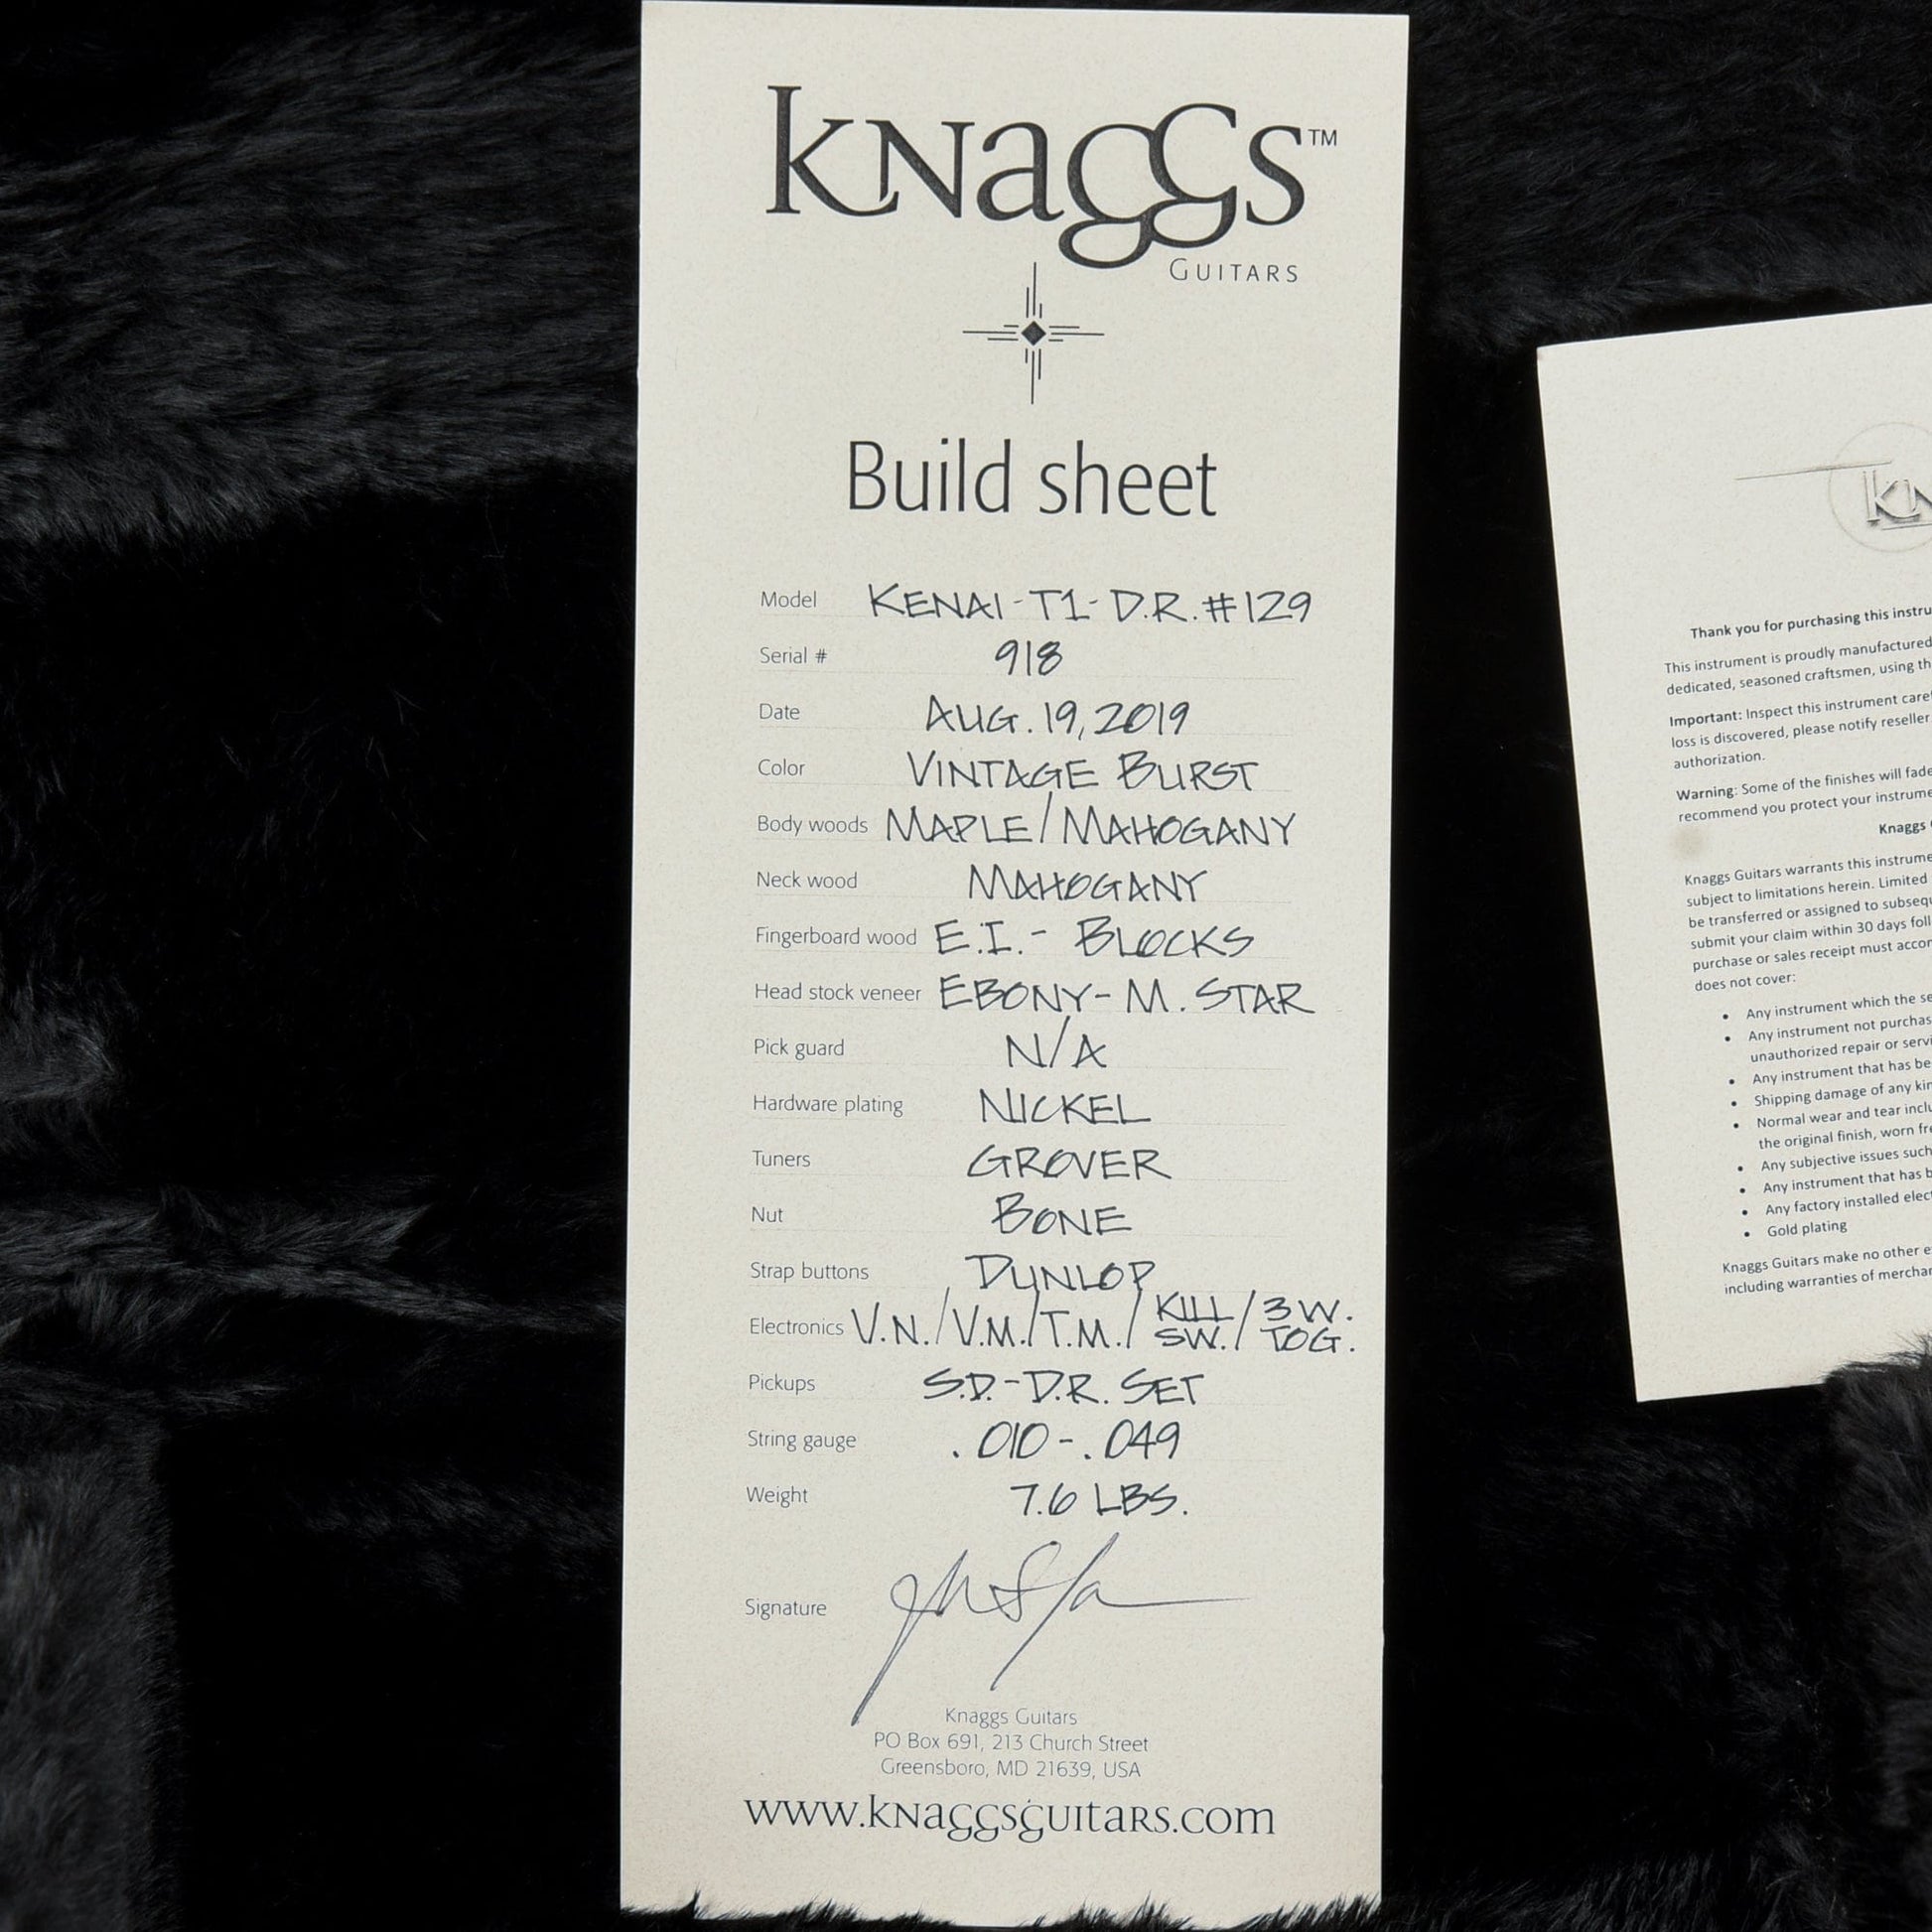 Knaggs™
Guitars
Build sheet
Model KENAI-T1-D.R. #129
Serial # 918
Date AUG. 19, 2019
Color VINTAGE BURST
Body woods MAPLE/MAHOGANY
Neck wood MAHOGANY
Fingerboard wood E.I.- BLOCKS
Head stock veneer EBONY- M. STAR
Pick guard N/A
Hardware plating NICKEL
Tuners GROVER
Nut BONE
Strap buttons DUNLOP
Electronics V.N./V.M./T.M./KILL SW./3 W. TOG.
Pickups S.D.-D.R. SET
String gauge .010-.049
Weight 7.6 LBS.
Signature
Knaggs Guitars
PO Box 691, 213 Church Street
Greensboro, MD 21639, USA
www.knaggsguitars.com
Thank you for purchasing this
This instrument is proudly manufactured
dedicated, seasoned craftsmen, using
Important: Inspect this instrument
loss is discovered, please notify reseller
authorization.
Warning: Some of the finishes will fade
recommend you protect your
Knaggs
Knaggs Guitars warrants this
subject to limitations herein. Limited
be transferred or assigned to
submit your claim within 30 days
purchase or sales receipt must
does not cover:
• Any instrument which the
• Any instrument not
unauthorized repair or
• Any instrument that has
• Shipping damage of any
• Normal wear and tear
the original finish, worn
• Any subjective issues such
• Any instrument that has
• Any factory installed
• Gold plating
Knaggs Guitars make no other
including warranties of